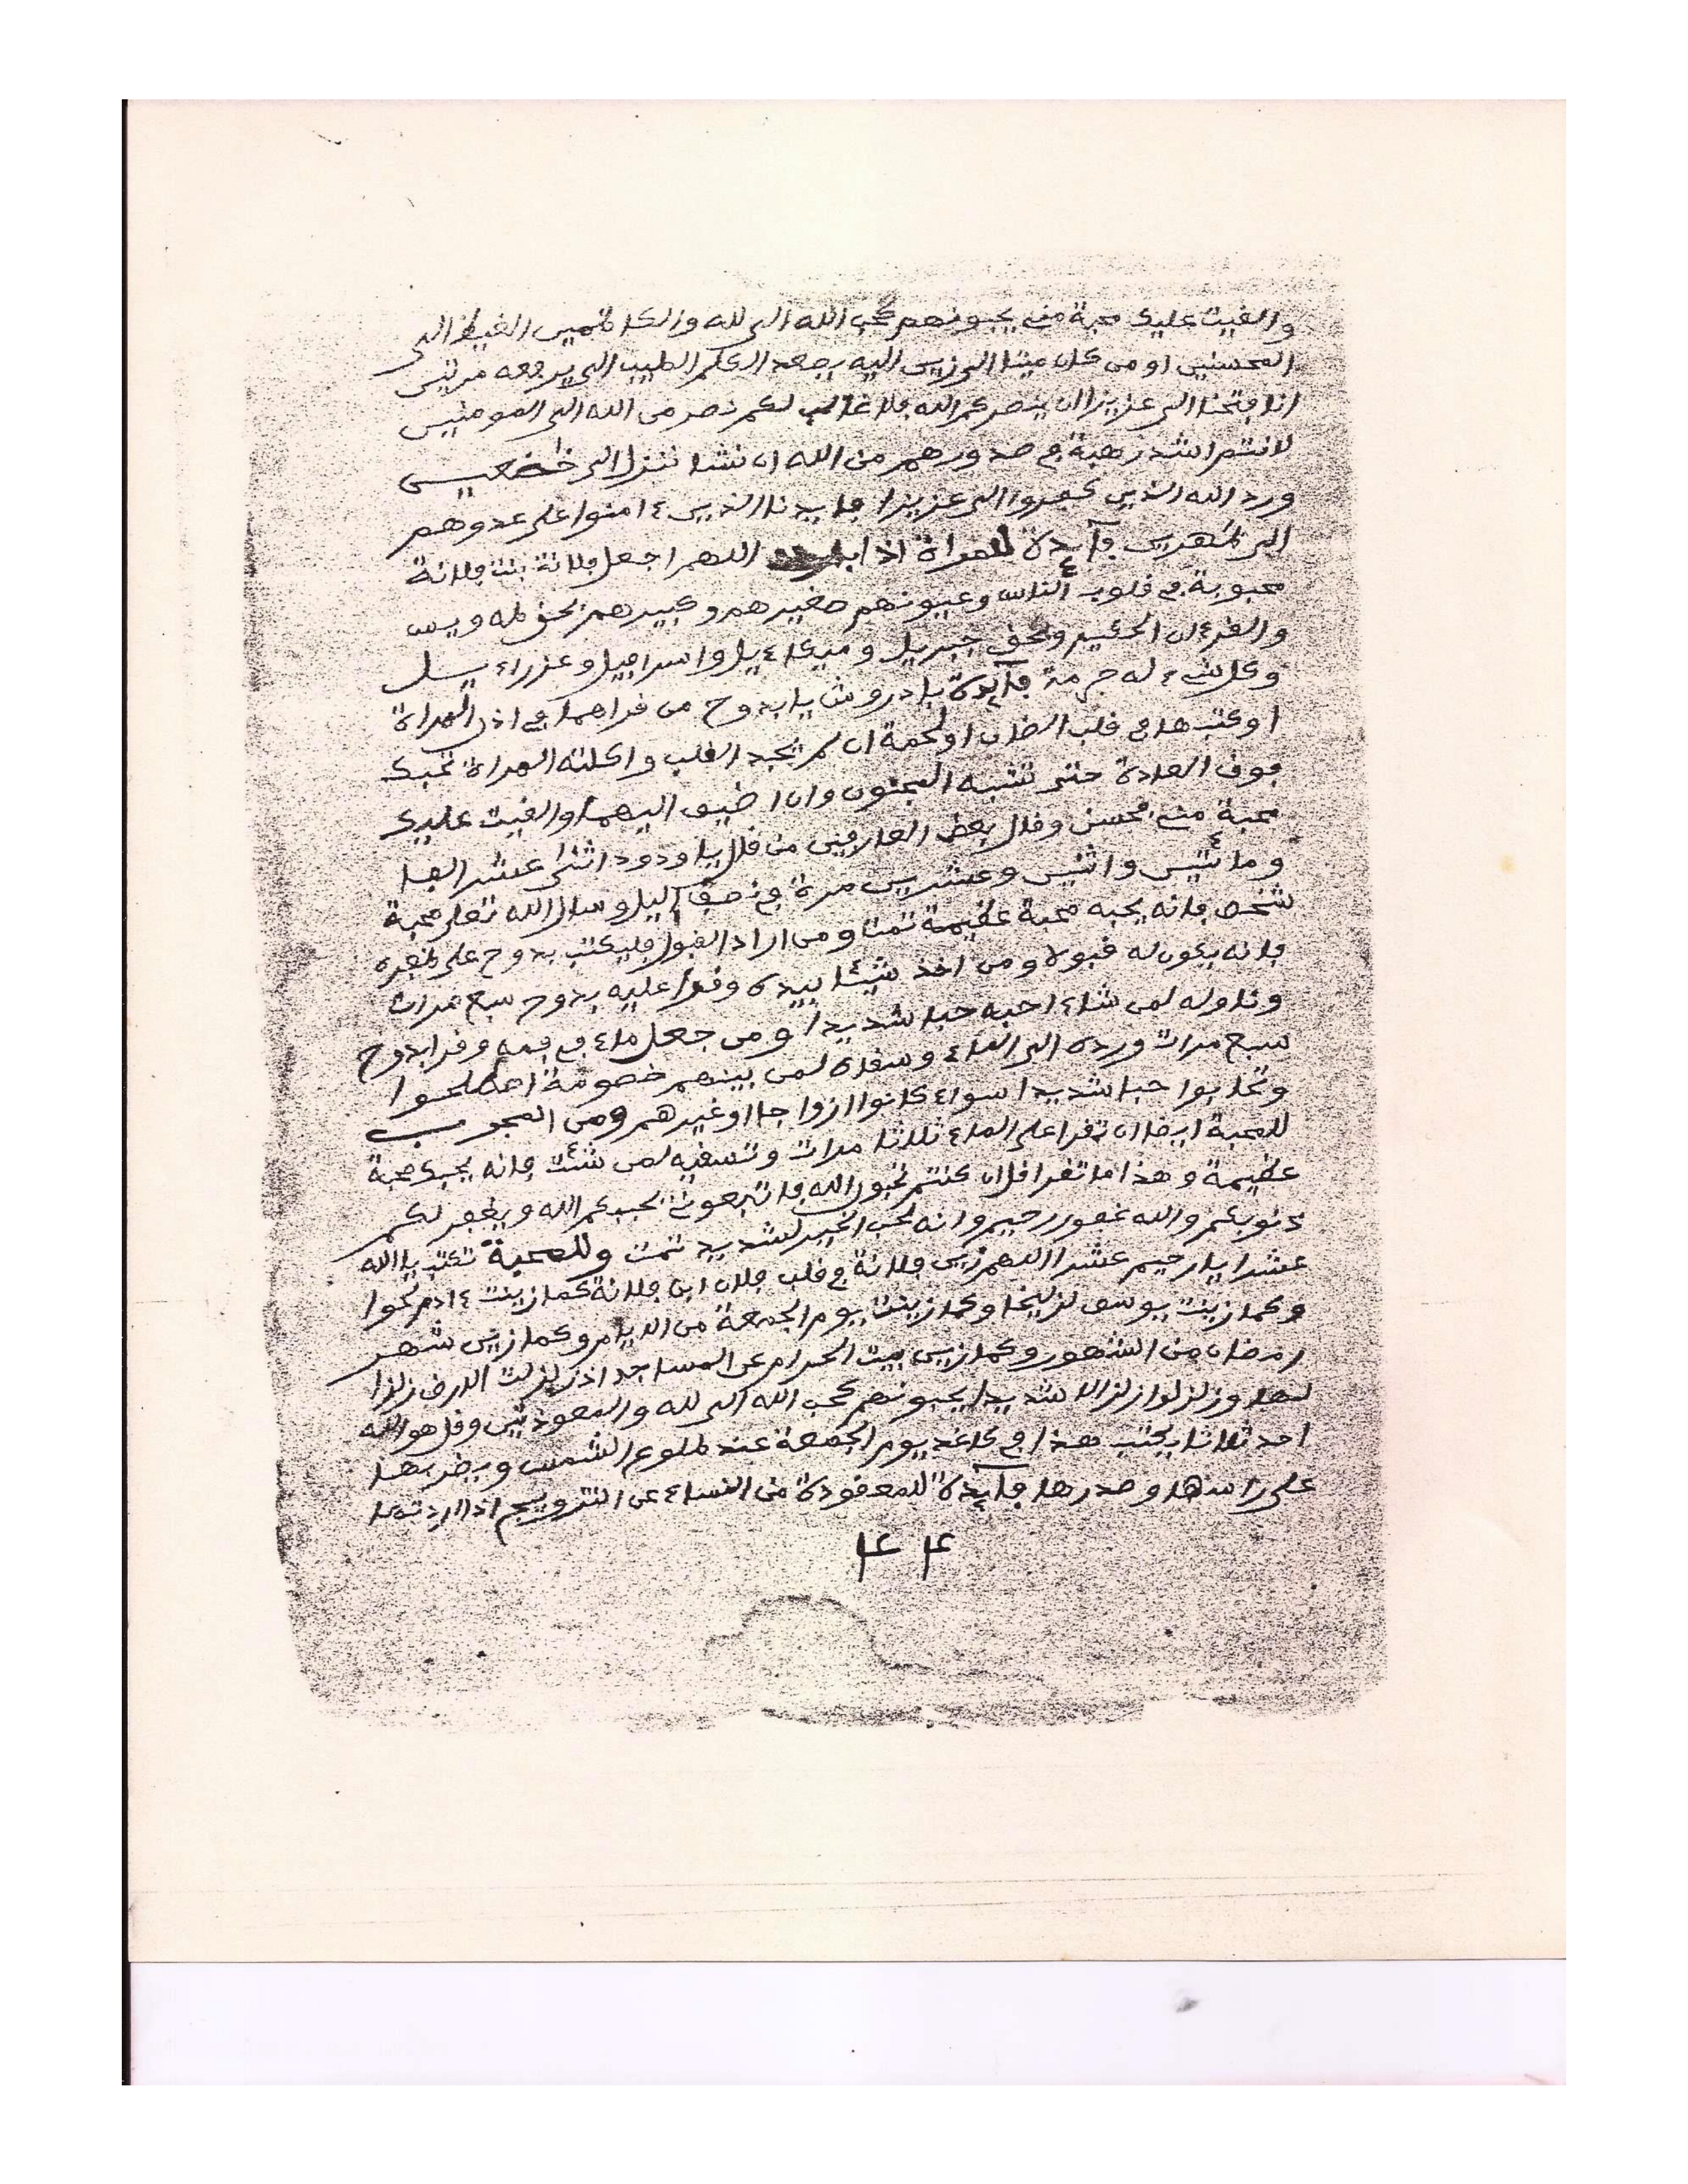 والقيت عليك محبة مني يحبونهم كحب الله الى لله والكاظمين الغيظ الى
المحسنين اومن كان ميتا الى زين اليه يصعد الكلم الطيب الى يرفعه مرتين
انا فتحنا الى عزيزا ان ينصركم الله فلا غالب لكم نصر من الله الى المومنين
لانتم اشد رهبة في صدورهم من الله ان نشا ننزل الى خضعين
ورد الله الذين كفروا الى عزيزا فايدنا الذين ءامنوا على عدوهم
الى ظهرين فآيدة للمراة اذا اللهم اجعل فلانة بنت فلانة
محبوبة في قلوب الناس وعيونهم صغيرهم وكبيرهم بحق طه ويس
والقرءان الحكيم وبحق جبريل وميكاءيل واسرافيل وعزراءيل
وكل شيء له حرمة فآيدة يا دروش يا بدوح من قراهما في اذن المراة
اوكتبها في قلب الضان اولحمة ان لم تجد القلب واكلته المراة تحبك
فوق العادة حتى تشبه المجنون وان اضيف اليهما والقيت عليك
محبة مني فحسن وقال بعض العارفين من قال يا ودود اثنى عشر الفا
ومائتين واثنين وعشرين مرة في نصف اليل وسال الله تعلى محبة
شخص فانه يحبه محبة عظيمة تمت ومن اراد القبول فليكتب بدوح على ظفره
فانه يكون له قبولا ومن اخذ شيئا بيده وقرا عليه بدوح سبع مرات
وناوله لمن شاء احبه حبا شديدا ومن جعل ماء في فمه وقرا بدوح
سبع مرات ورده الى الماء وسقاه لمن بينهم خصومة اصطلحوا
وتحابوا حبا شديدا سواء كانوا ازواجا اوغيرهم ومن المجرب
للمحبة ايضا ان تقرا على الماء ثلاثا مرات وتسقيه لمن شئت فانه يحبك محبة
عظيمة وهذا ما تقرا قل ان كنتم تحبون الله فاتبعوني يحببكم الله ويغفر لكم
ذنوبكم والله غفور رحيم وانه لحب الخير لشديد تمت وللمحبة تكتب يا الله
عشرا يا رحيم عشرا اللهم زين فلانة في قلب فلان ابن فلانة كما زينت ءادم لحوا
وكما زينت يوسف لزليخا وكما زينت يوم الجمعة من الايام وكما زين شهر
رمضان من الشهور وكما زين بيت الحرام عن المساجد اذ زلزلت الارض زلزا
لها وزلزلوا زلزالا شديدا يحبونهم كحب الله الى لله والمعوذتين وقل هو الله
احد ثلاثا يكتب هذا في كاغد يوم الجمعة عند طلوع الشمس ويضربها
على راسها وصدرها فآيدة للمعقودة من النساء عن التزويج اذا اردت